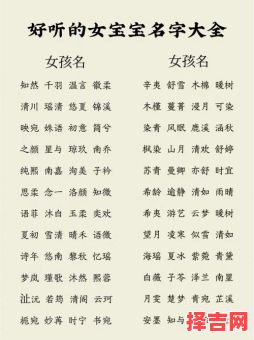 好听的女宝宝名字大全
女孩名 女孩名
知然 千羽 温言 徽柔 辛夷 舒雪 木棉 暖树
清川 瑶清 悠夏 锦溪 木槿 蔓菁 浸月 可染
映宛 姝语 初意 简兮 染青 风眠 鹿溪 涵秋
之颜 星与 琼玖 南乔 枫染 山月 清欢 舒婷
纯熙 南嘉 洵美 子衿 苏青 曼卿 亦舒 时宜
思柔 念一 洛颜 知微 希龄 逾静 清如 雨晴
语菲 沐白 玉柔 奕欢 希夷 游艺 云梦 暖树
夏初 雪清 晴禾 语微 望月 凌寒 似雪 清如
诗年 悠南 黎秋 忆瑶 海瑶 夏冰 萦霓 青黛
梦岚 瑾歌 沐然 熙雯 白薇 子苓 泽兰 南星
沚沅 若筠 清阁 云珂 月雯 楚楚 青宛 芷溪
栀宛 妙苒 时宁 书宛 安墨 知与
择吉网